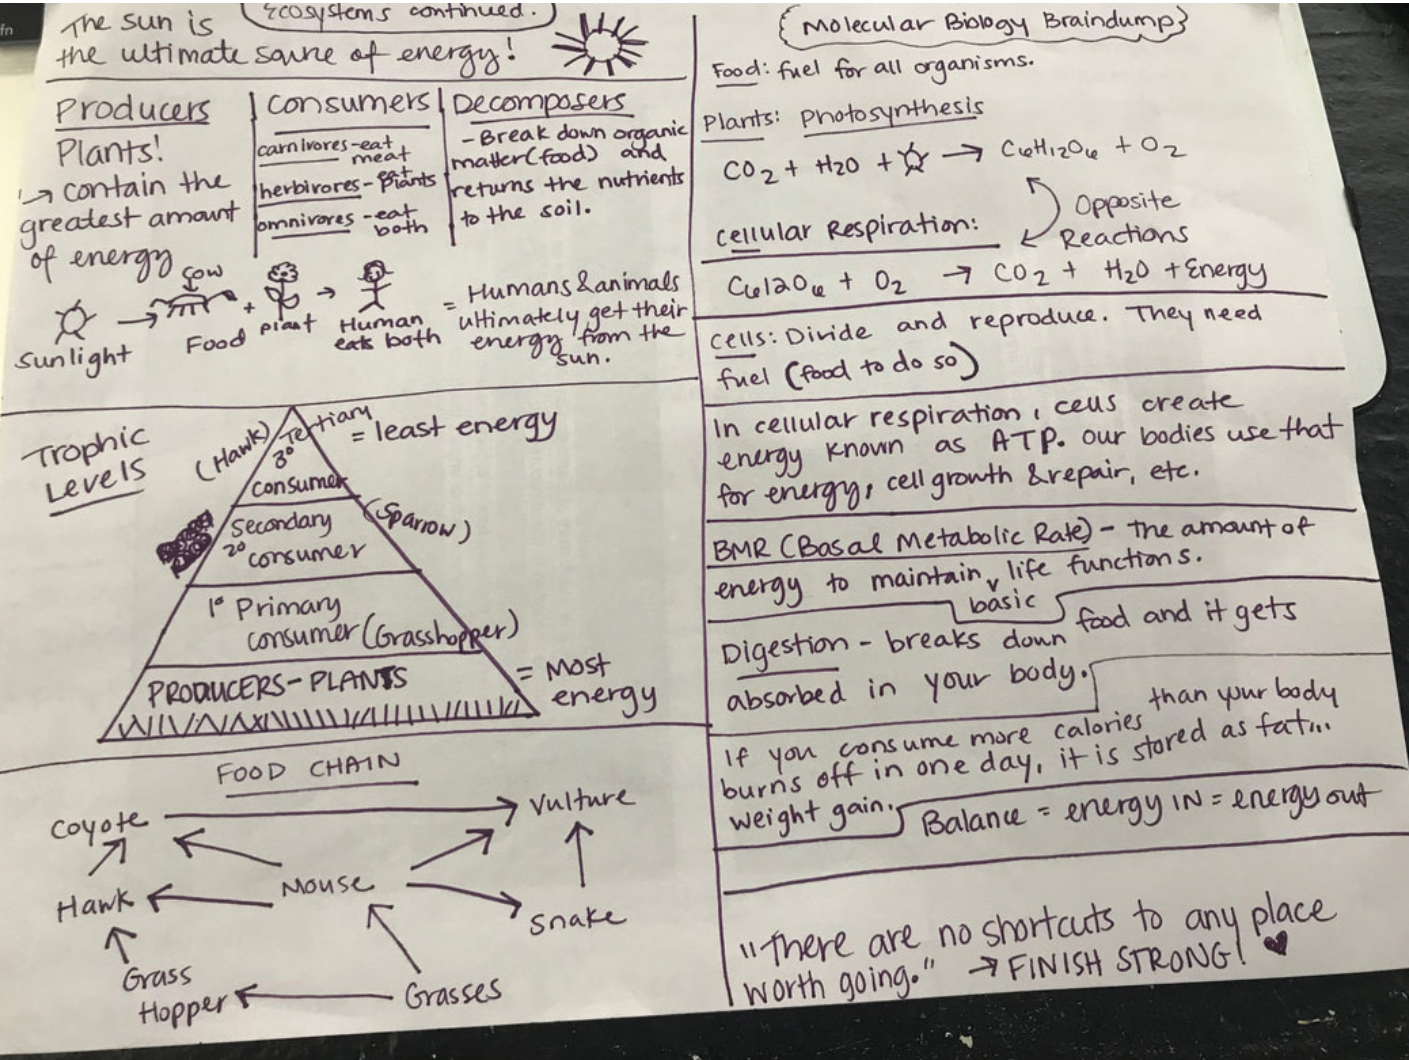 fn
Ecosystems continued.
The sun is
the ultimate source of energy!
Producers
Plants!
↳ contain the
greatest amount
of energy
Consumers
carnivores-eat
meat
herbivores-eat
plants
omnivores-eat
both
Decomposers
- Break down organic
matter(food) and
returns the nutrients
to the soil.
Sunlight → Cow + plant → Human
Food
eats both
= Humans & animals
ultimately get their
energy from the
sun.
Trophic
Levels
(Hawk)
Tertiary
3°
consumer
= least energy
Secondary
2° consumer
(Sparrow)
1° Primary
consumer (Grasshopper)
PRODUCERS-PLANTS
= Most
energy
FOOD CHAIN
Coyote → Vulture
Hawk ← Mouse → Snake
Grass
Hopper ← Grasses
Molecular Biology Braindump
Food: fuel for all organisms.
Plants: Photosynthesis
CO2 + H2O + → C6H12O6 + O2
Opposite
Reactions
Cellular Respiration:
C612O6 + O2 → CO2 + H2O + Energy
Cells: Divide and reproduce. They need
fuel (food to do so)
In cellular respiration, cells create
energy known as ATP. Our bodies use that
for energy, cell growth & repair, etc.
BMR (Basal Metabolic Rate) - the amount of
energy to maintain basic life functions.
Digestion - breaks down food and it gets
absorbed in your body.
If you consume more calories than your body
burns off in one day, it is stored as fat...
weight gain.
Balance = energy IN = energy out
"There are no shortcuts to any place
worth going." → FINISH STRONG! ♥